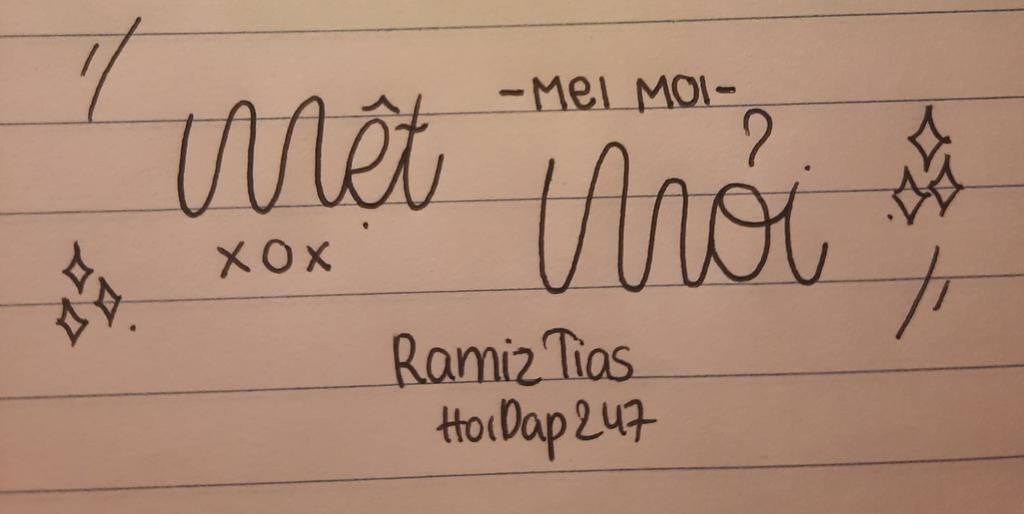 -MEI MOI-
Mệt Mỏi
xox
Ramiz Tias
HoiDap247